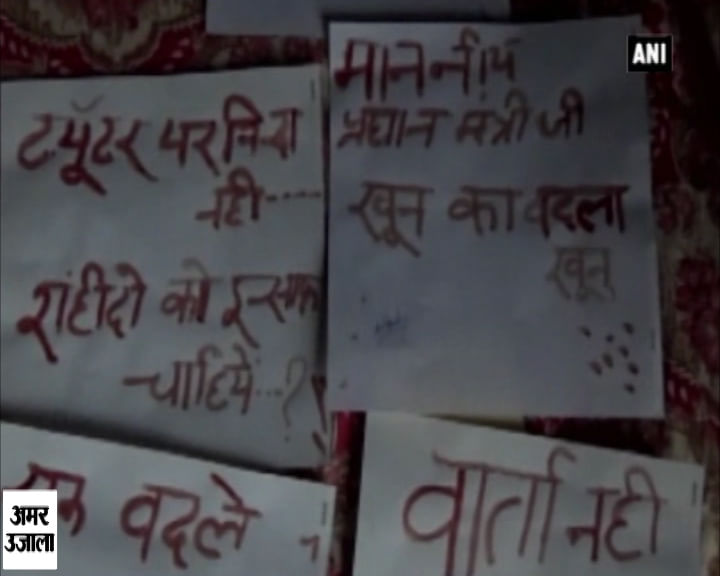 ट्यूटर पर निंदा
नही----
शंहीदो को इन्साफ
चाहिये...?
माननीय
प्रधान मंत्री जी
खून का बदला
खून
बदले
वार्ता नही
ANI
अमर
उजाला